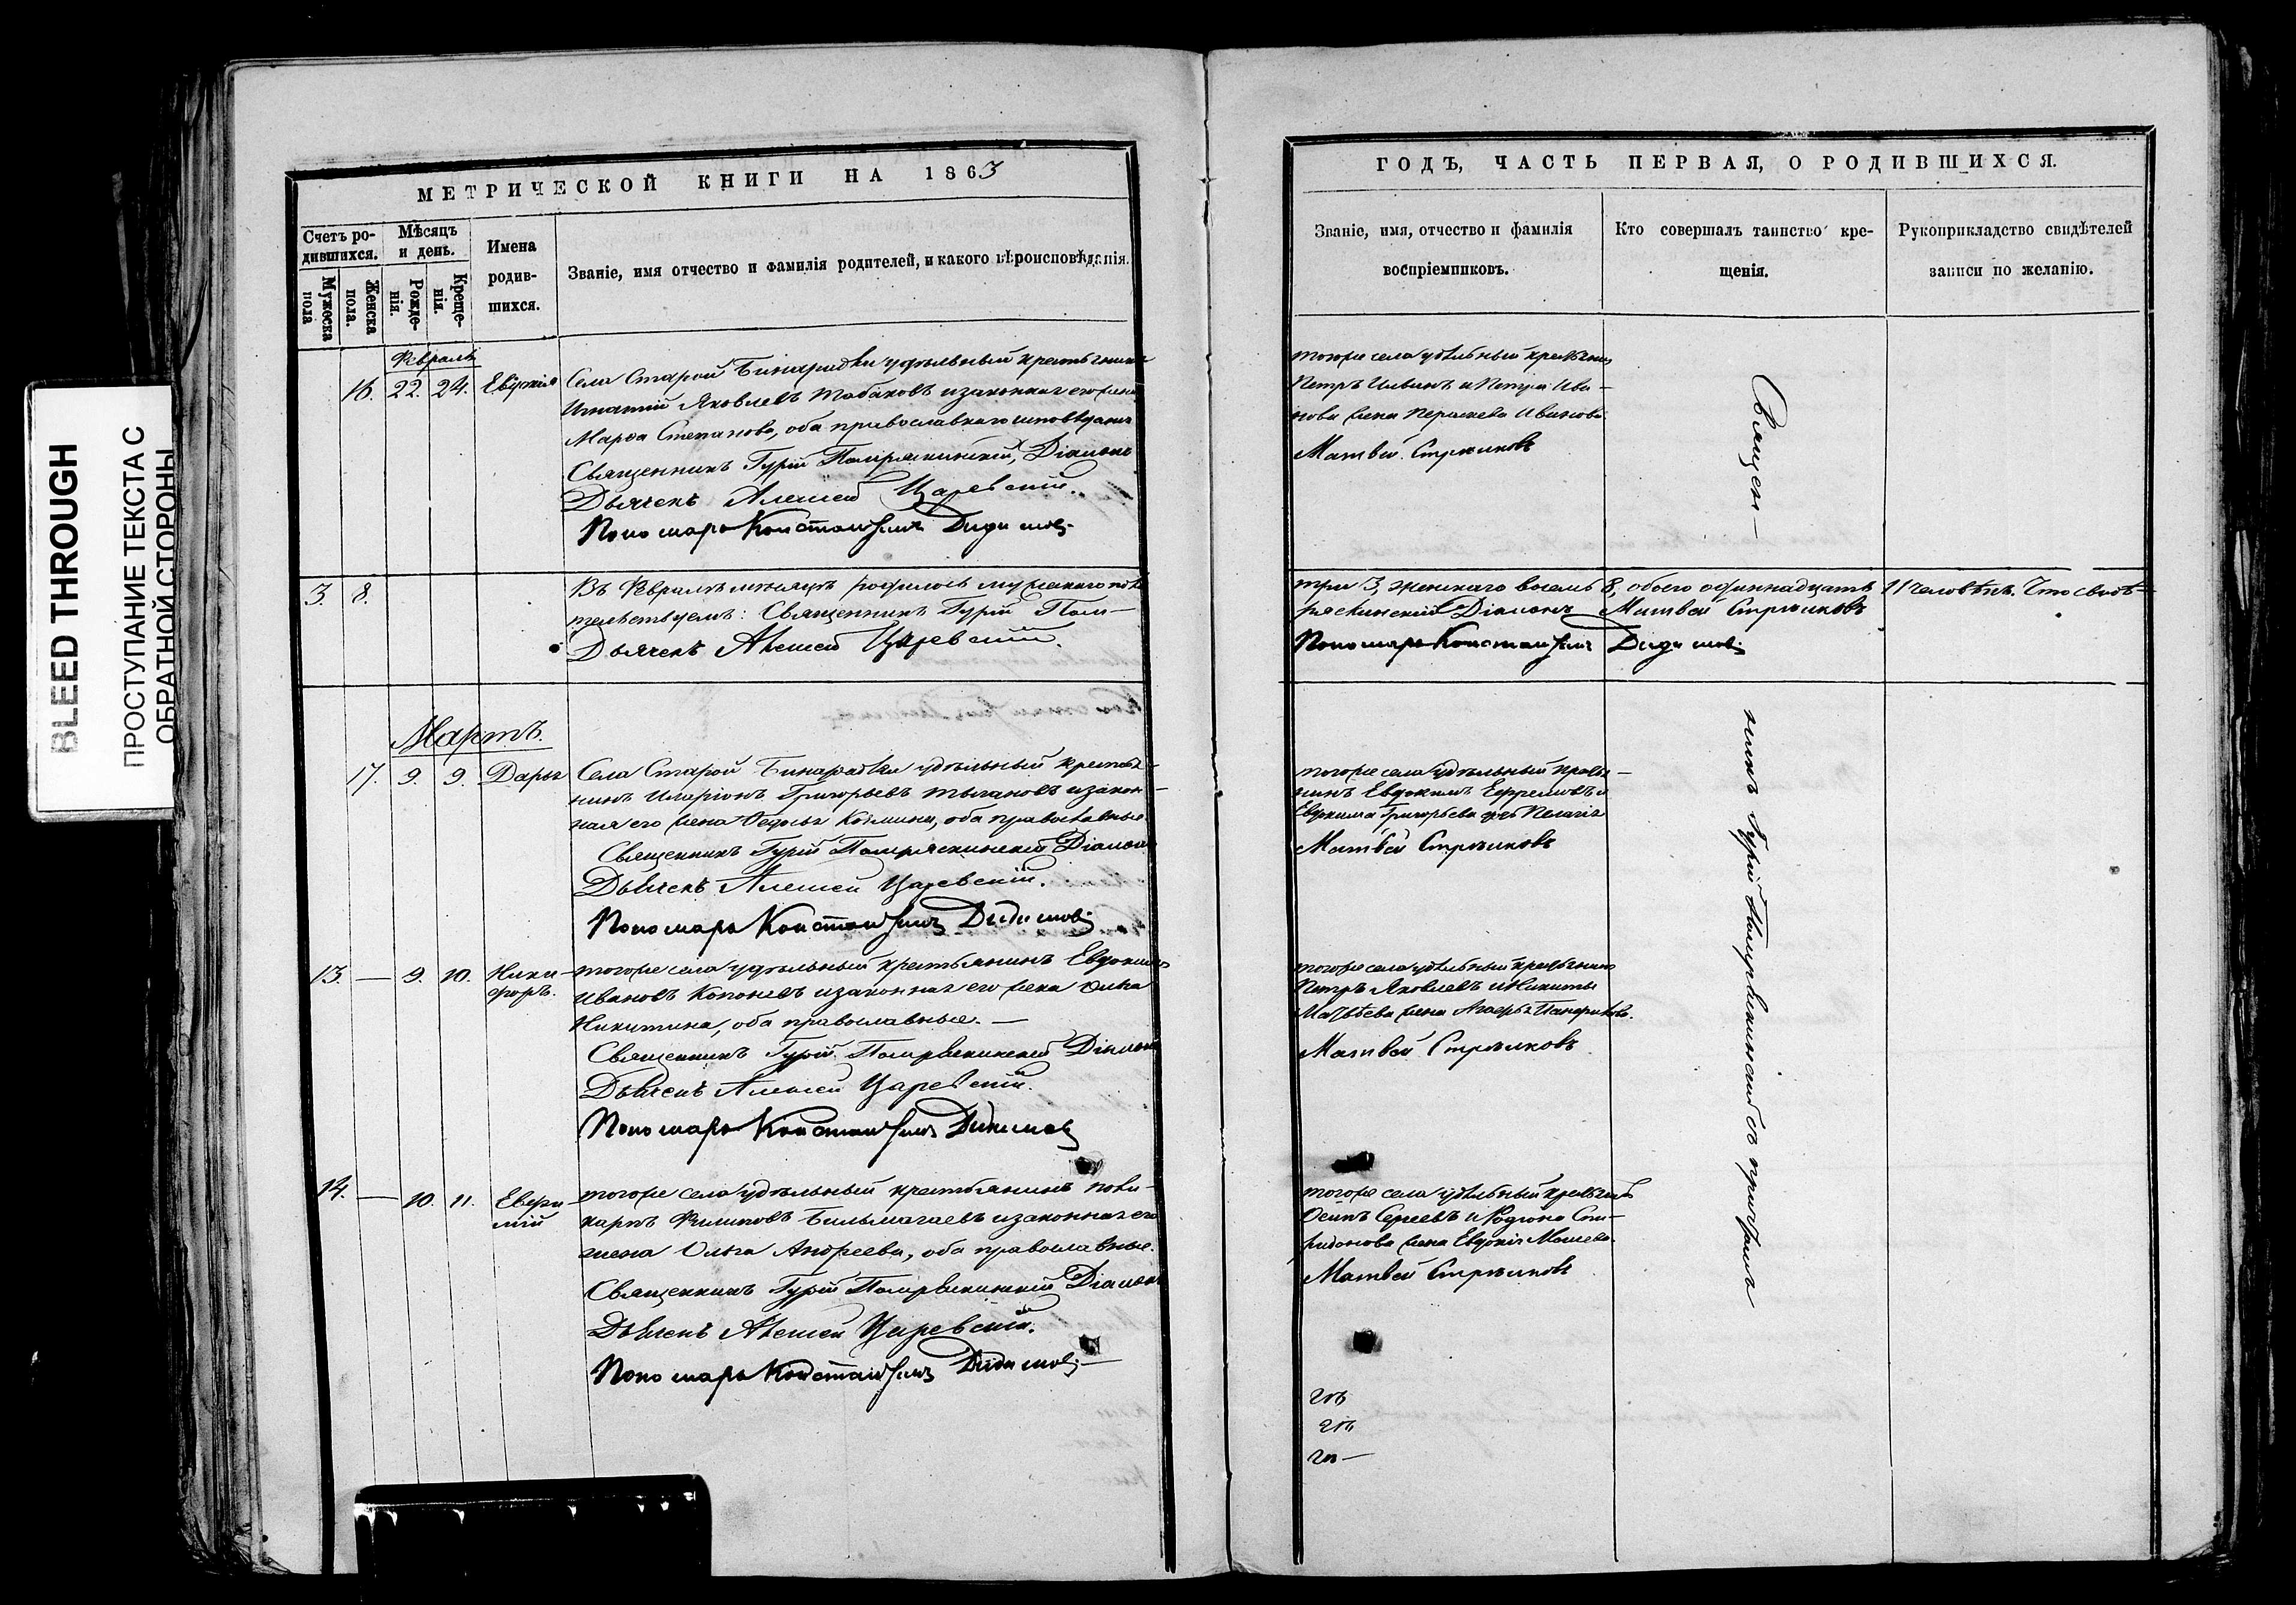 BLEED THROUGH
ПРОСТУПАНИЕ ТЕКСТА С
ОБРАТНОЙ СТОРОНЫ
МЕТРИЧЕСКОЙ КНИГИ НА 1863
Счетъ ро-
дившихся.
Мужеска
пола
Женска
пола.
Мѣсяцъ
и день.
Рожде-
нія.
Креще-
нія.
Имена
родив-
шихся.
Званіе, имя отчество и фамилія родителей, и какого вѣроисповѣданія.
Февраль
16. 22. 24. Евдокія
Села Старой Бинарадки удѣльный крестьянинъ
Игнатій Яковлевъ Табаковъ и законная его жена
Марѳа Степанова, оба православнаго исповѣданія
Священникъ Гурій Діаконъ
Дьячекъ Алексей Царевскій.
Пономарь Константинъ Дидимовъ
3. 8.
Въ Февралѣ мѣсяцѣ родилось мужескаго пола
тельствуемъ: Священникъ Гурій
Дьячекъ Алексей Царевскій.
Мартъ.
17. 9. 9. Дарья
Села Старой Бинарадки удѣльный крестья-
нинъ Иларіонъ Григорьевъ и закон-
ная его жена Ѳедосья Козмина, оба православные.
Священникъ Гурій Діаконъ
Дьячекъ Алексей Царевскій.
Пономарь Константинъ Дидимовъ
13. — 9. 10. Ники-
форъ.
тогоже села удѣльный крестьянинъ Евдокимъ
Ивановъ и законная его жена
Никитина, оба православные. —
Священникъ Гурій Діаконъ
Дьячекъ Алексей Царевскій.
Пономарь Константинъ Дидимовъ
14. — 10. 11.
тогоже села удѣльный крестьянинъ Поли-
карпъ Филиповъ Бильмагаевъ и законная его
жена Ольга Андреева, оба православные.
Священникъ Гурій Діаконъ
Дьячекъ Алексей Царевскій.
Пономарь Константинъ Дидимовъ
ГОДЪ, ЧАСТЬ ПЕРВАЯ, О РОДИВШИХСЯ.
Званіе, имя, отчество и фамилія
воспріемниковъ.
Кто совершалъ таинство кре-
щенія.
Рукоприкладство свидѣтелей
записи по желанію.
тогоже села удѣльный крестьянинъ
Петръ Ильинъ и Петра Ива-
нова жена Параскева Иванова
Матвей Стрѣлковъ
три 3, женскаго восемь 8, обоего одиннадцать 11 человѣкъ. Что свидѣ-
Діаконъ Матвей Стрѣлковъ
Пономарь Константинъ Дидимовъ
тогоже села удѣльный крестья-
нинъ Евдокимъ Ефремовъ и
Евдокима Григорьева дочь Пелагія
Матвей Стрѣлковъ
тогоже села удѣльный крестьянинъ
Петръ Яковлевъ и Никиты
Матвѣева жена
Матвей Стрѣлковъ
тогоже села удѣльный крестьянинъ
Осипъ Сергеевъ и Родіона Спи-
ридонова жена Евдокія
Матвей Стрѣлковъ
Священ-
никъ Гурій съ причтомъ